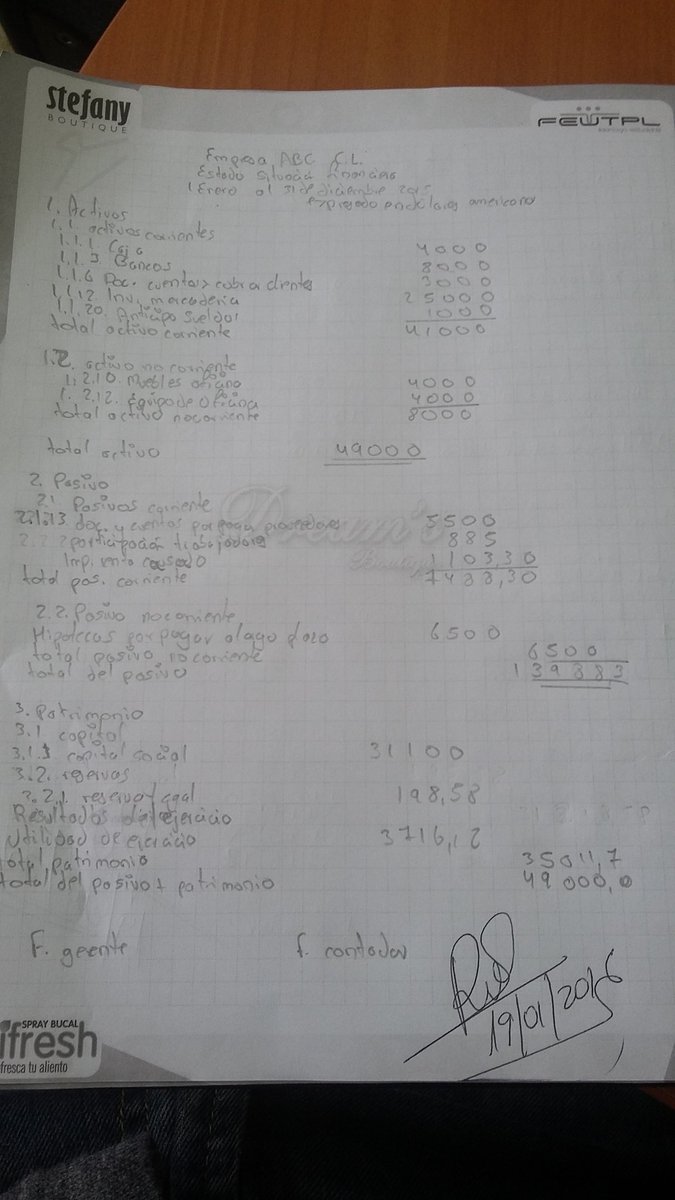 Stefany
BOUTIQUE
FEUTPL
Empresa ABC C.L.
Estado Situación Financiera
1 Enero al 31 de diciembre 2015
expresado en dólares americano
1. Activos
1.1. activos corrientes
1.1.1. Caja 4000
1.1.3. Bancos 8000
1.1.6 Doc. cuentas x cobrar clientes 3000
1.1.12. Inv. mercaderia 25000
1.1.20. Anticipo sueldos 1000
total activo corriente 41000
1.2. activo no corriente
1.2.10. Muebles oficina 4000
1.2.12. Equipo de oficina 4000
total activo no corriente 8000
total activo 49000
2. Pasivo
2.1 Pasivos corriente
2.1.13 doc. y cuentas por pagar proveedores 5500
participación trabajadores 885
Imp. renta causado 1103,30
total pas. corriente 7488,30
2.2. Pasivo no corriente
Hipotecas por pagar a lago plazo 6500
total pasivo no corriente 6500
total del pasivo 139883
3. Patrimonio
3.1 capital
3.1.1 capital social 31100
3.2. reservas
3.2.1. reserva legal 198,58
Resultados del ejercicio
utilidad de ejercicio 3716,12
total patrimonio 35011,7
total del pasivo + patrimonio 49000,0
F. gerente f. contador
19/01/2016
SPRAY BUCAL
ifresh
fresca tu aliento
Dream's
Boutique